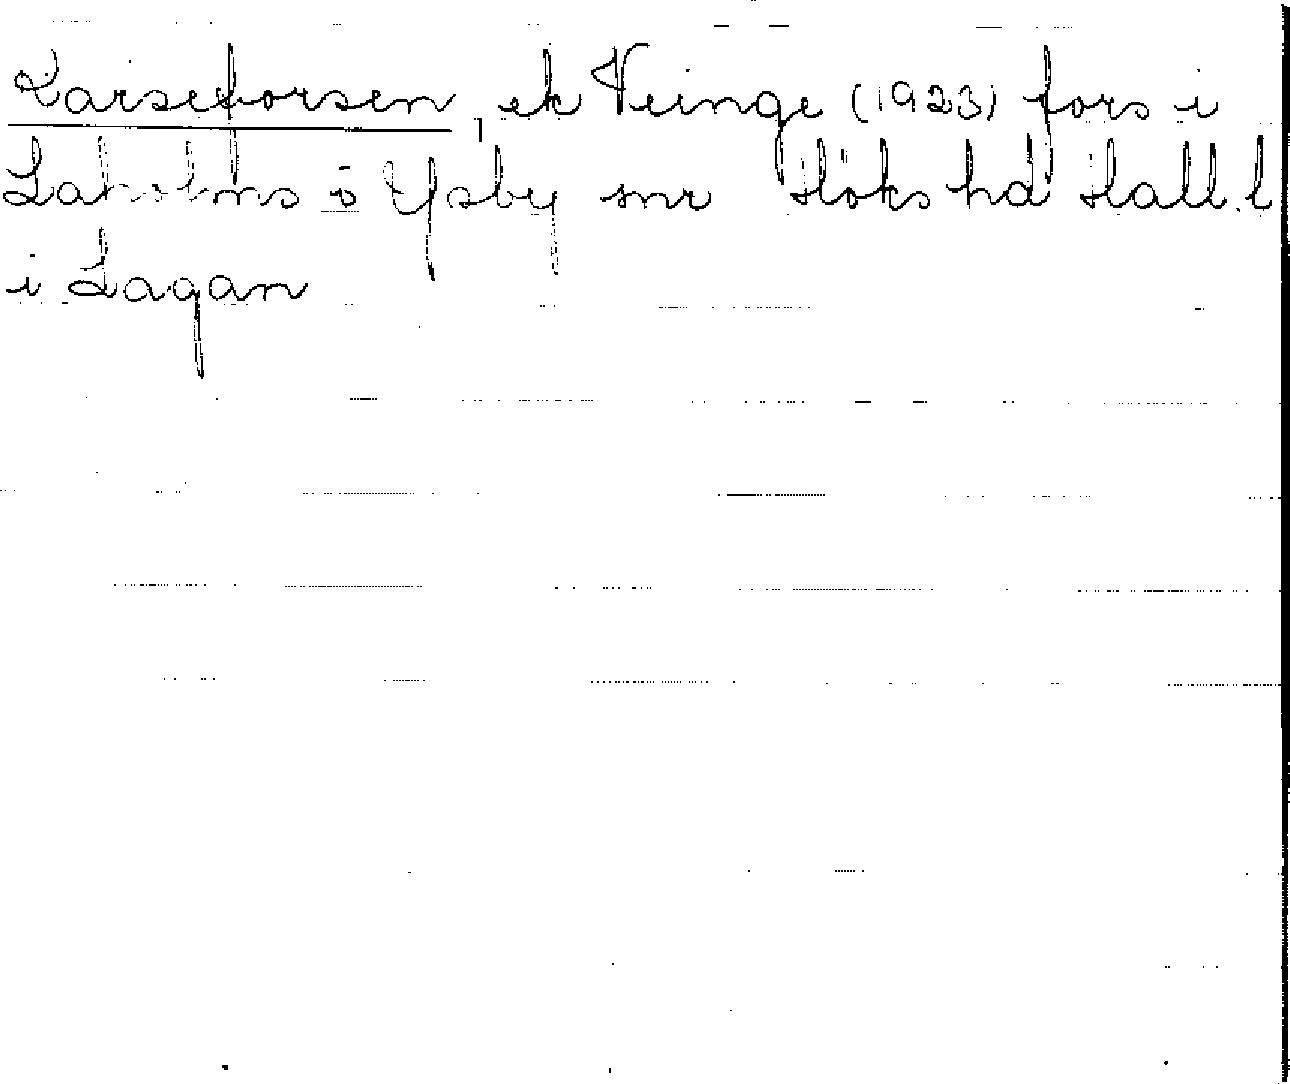 Karseforsen, ek Veinge (1923) fors i
Laholms o Ysby snr Höks hd Hall. l
i Lagan